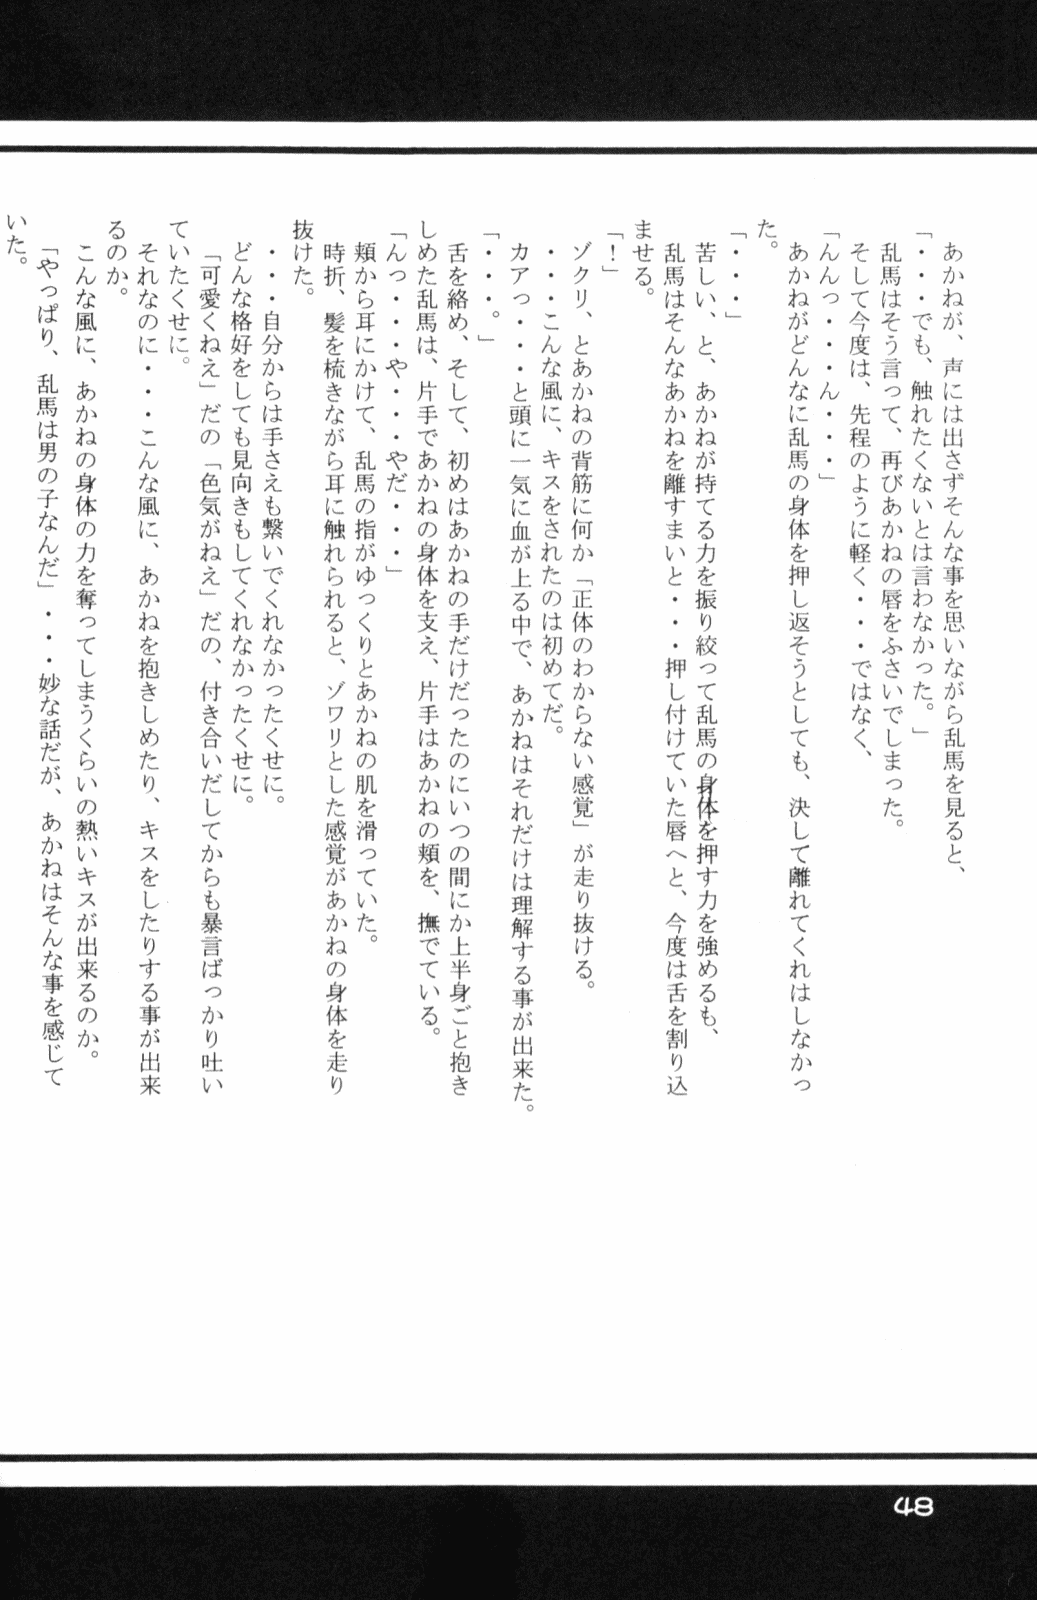 あかねが、声には出さずそんな事を思いながら乱馬を見ると、
「・・・でも、触れたくないとは言わなかった。」
乱馬はそう言って、再びあかねの唇をふさいでしまった。
そして今度は、先程のように軽く・・・ではなく、
「んんっ・・・ん・・・」
あかねがどんなに乱馬の身体を押し返そうとしても、決して離れてくれはしなかっ
た。
「・・・」
苦しい、と、あかねが持てる力を振り絞って乱馬の身体を押す力を強めるも、
乱馬はそんなあかねを離すまいと・・・押し付けていた唇へと、今度は舌を割り込
ませる。
「！」
ゾクリ、とあかねの背筋に何か「正体のわからない感覚」が走り抜ける。
・・・こんな風に、キスをされたのは初めてだ。
カアっ・・・と頭に一気に血が上る中で、あかねはそれだけは理解する事が出来た。
「・・・。」
舌を絡め、そして、初めはあかねの手だけだったのにいつの間にか上半身ごと抱き
しめた乱馬は、片手であかねの身体を支え、片手はあかねの頬を、撫でている。
「んっ・・・や・・・やだ・・・」
頬から耳にかけて、乱馬の指がゆっくりとあかねの肌を滑っていた。
時折、髪を梳きながら耳に触れられると、ゾワリとした感覚があかねの身体を走り
抜けた。
・・・自分からは手さえも繋いでくれなかったくせに。
どんな格好をしても見向きもしてくれなかったくせに。
「可愛くねえ」だの「色気がねえ」だの、付き合いだしてからも暴言ばっかり吐い
ていたくせに。
それなのに・・・こんな風に、あかねを抱きしめたり、キスをしたりする事が出来
るのか。
こんな風に、あかねの身体の力を奪ってしまうくらいの熱いキスが出来るのか。
「やっぱり、乱馬は男の子なんだ」・・・妙な話だが、あかねはそんな事を感じて
いた。
48